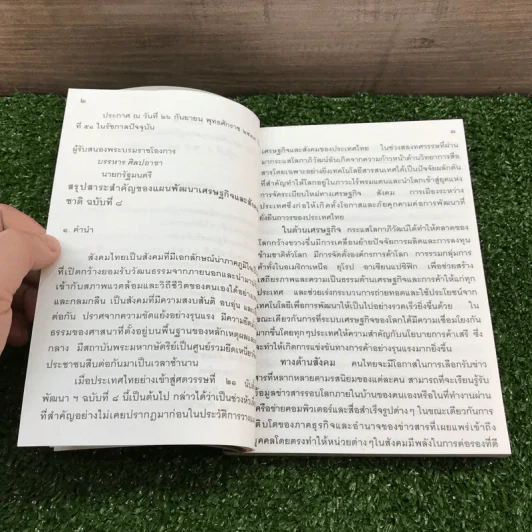 ๒
ประกาศ ณ วันที่ ๒๖ กันยายน พุทธศักราช
ที่ ๕๑ ในรัชกาลปัจจุบัน
ผู้รับสนองพระบรมราชโองการ
บรรหาร ศิลปอาชา
นายกรัฐมนตรี
สรุปสาระสำคัญของแผนพัฒนาเศรษฐกิจและสัง
ชาติ ฉบับที่ ๘
๑. คำนำ
สังคมไทยเป็นสังคมที่มีเอกลักษณ์น่าภาคภูมิใจ
ที่เปิดกว้างยอมรับวัฒนธรรมจากภายนอกและนำมา
เข้ากับสภาพแวดล้อมและวิถีชีวิตของตนเองได้อย่าง
และกลมกลืน เป็นสังคมที่มีความสงบสันติ อบอุ่น และ
ต่อกัน ปราศจากความขัดแย้งอย่างรุนแรง มีความยึด
ธรรมของศาสนาที่ตั้งอยู่บนพื้นฐานของหลักเหตุผล
กลาง มีสถาบันพระมหากษัตริย์เป็นศูนย์รวมยึดเหนี่ยว
ประชาชนสืบต่อกันมาเป็นเวลาช้านาน
เมื่อประเทศไทยย่างเข้าสู่ศตวรรษที่ ๒๑ นับ
พัฒนา ฯ ฉบับที่ ๘ นี้เป็นต้นไป กล่าวได้ว่าเป็นช่วงหัว
ที่สำคัญอย่างไม่เคยปรากฏมาก่อนในประวัติการวาง
๓
เศรษฐกิจและสังคมของประเทศไทย ในช่วงสองทศวรรษที่ผ่าน
มากระแสโลกาภิวัตน์อันเกิดจากความก้าวหน้าด้านวิทยาการสื่อ
สารโดยเฉพาะอย่างยิ่งเทคโนโลยีสารสนเทศได้เป็นปัจจัยผลักดัน
ที่สำคัญทำให้โลกอยู่ในภาวะไร้พรมแดนและนำโลกเข้าสู่ยุคแห่ง
การจัดระเบียบใหม่ทางเศรษฐกิจ สังคม การเมืองระหว่าง
ประเทศ ซึ่งก่อให้เกิดทั้งโอกาสและภัยคุกคามต่อการพัฒนาที่
ยั่งยืนถาวรของประเทศไทย
ในด้านเศรษฐกิจ กระแสโลกาภิวัตน์ได้ทำให้ตลาดของ
โลกกว้างขวางขึ้นมีการเคลื่อนย้ายปัจจัยการผลิตและการลงทุน
ข้ามชาติทั่วโลก มีการจัดตั้งองค์กรการค้าโลก การรวมกลุ่มการ
ค้าทั้งในอเมริกาเหนือ ยุโรป อาเซียนแปซิฟิก เพื่อช่วยสร้าง
เสถียรภาพและความเป็นธรรมด้านเศรษฐกิจและการค้าให้แก่ทุก
ประเทศ และช่วยเร่งกระบวนการถ่ายทอดและใช้ประโยชน์จาก
เทคโนโลยีเพื่อการพัฒนาให้เป็นไปอย่างรวดเร็วยิ่งขึ้นด้วย ใน
ขณะเดียวกันการที่ระบบเศรษฐกิจของโลกได้มีความเชื่อมโยงกัน
มากขึ้นโดยทุกๆประเทศให้ความสำคัญกับนโยบายการค้าเสรี ซึ่ง
จะทำให้เกิดการแข่งขันทางการค้าอย่างรุนแรงมากยิ่งขึ้น
ทางด้านสังคม คนไทยจะมีโอกาสในการเลือกรับข่าว
สารที่หลากหลายตามรสนิยมของแต่ละคน สามารถที่จะเรียนรู้รับ
ข้อมูลข่าวสารรอบโลกภายในบ้านของตนเองหรือในที่ทำงานผ่าน
เครือข่ายคอมพิวเตอร์และสื่อสำเร็จรูปต่างๆ ในขณะเดียวกันการ
เติบโตของภาคธุรกิจและอำนาจของข่าวสารที่เผยแพร่เข้าถึง
บุคคลโดยตรงทำให้หน่วยต่างๆในสังคมมีพลังในการต่อรองที่ดี